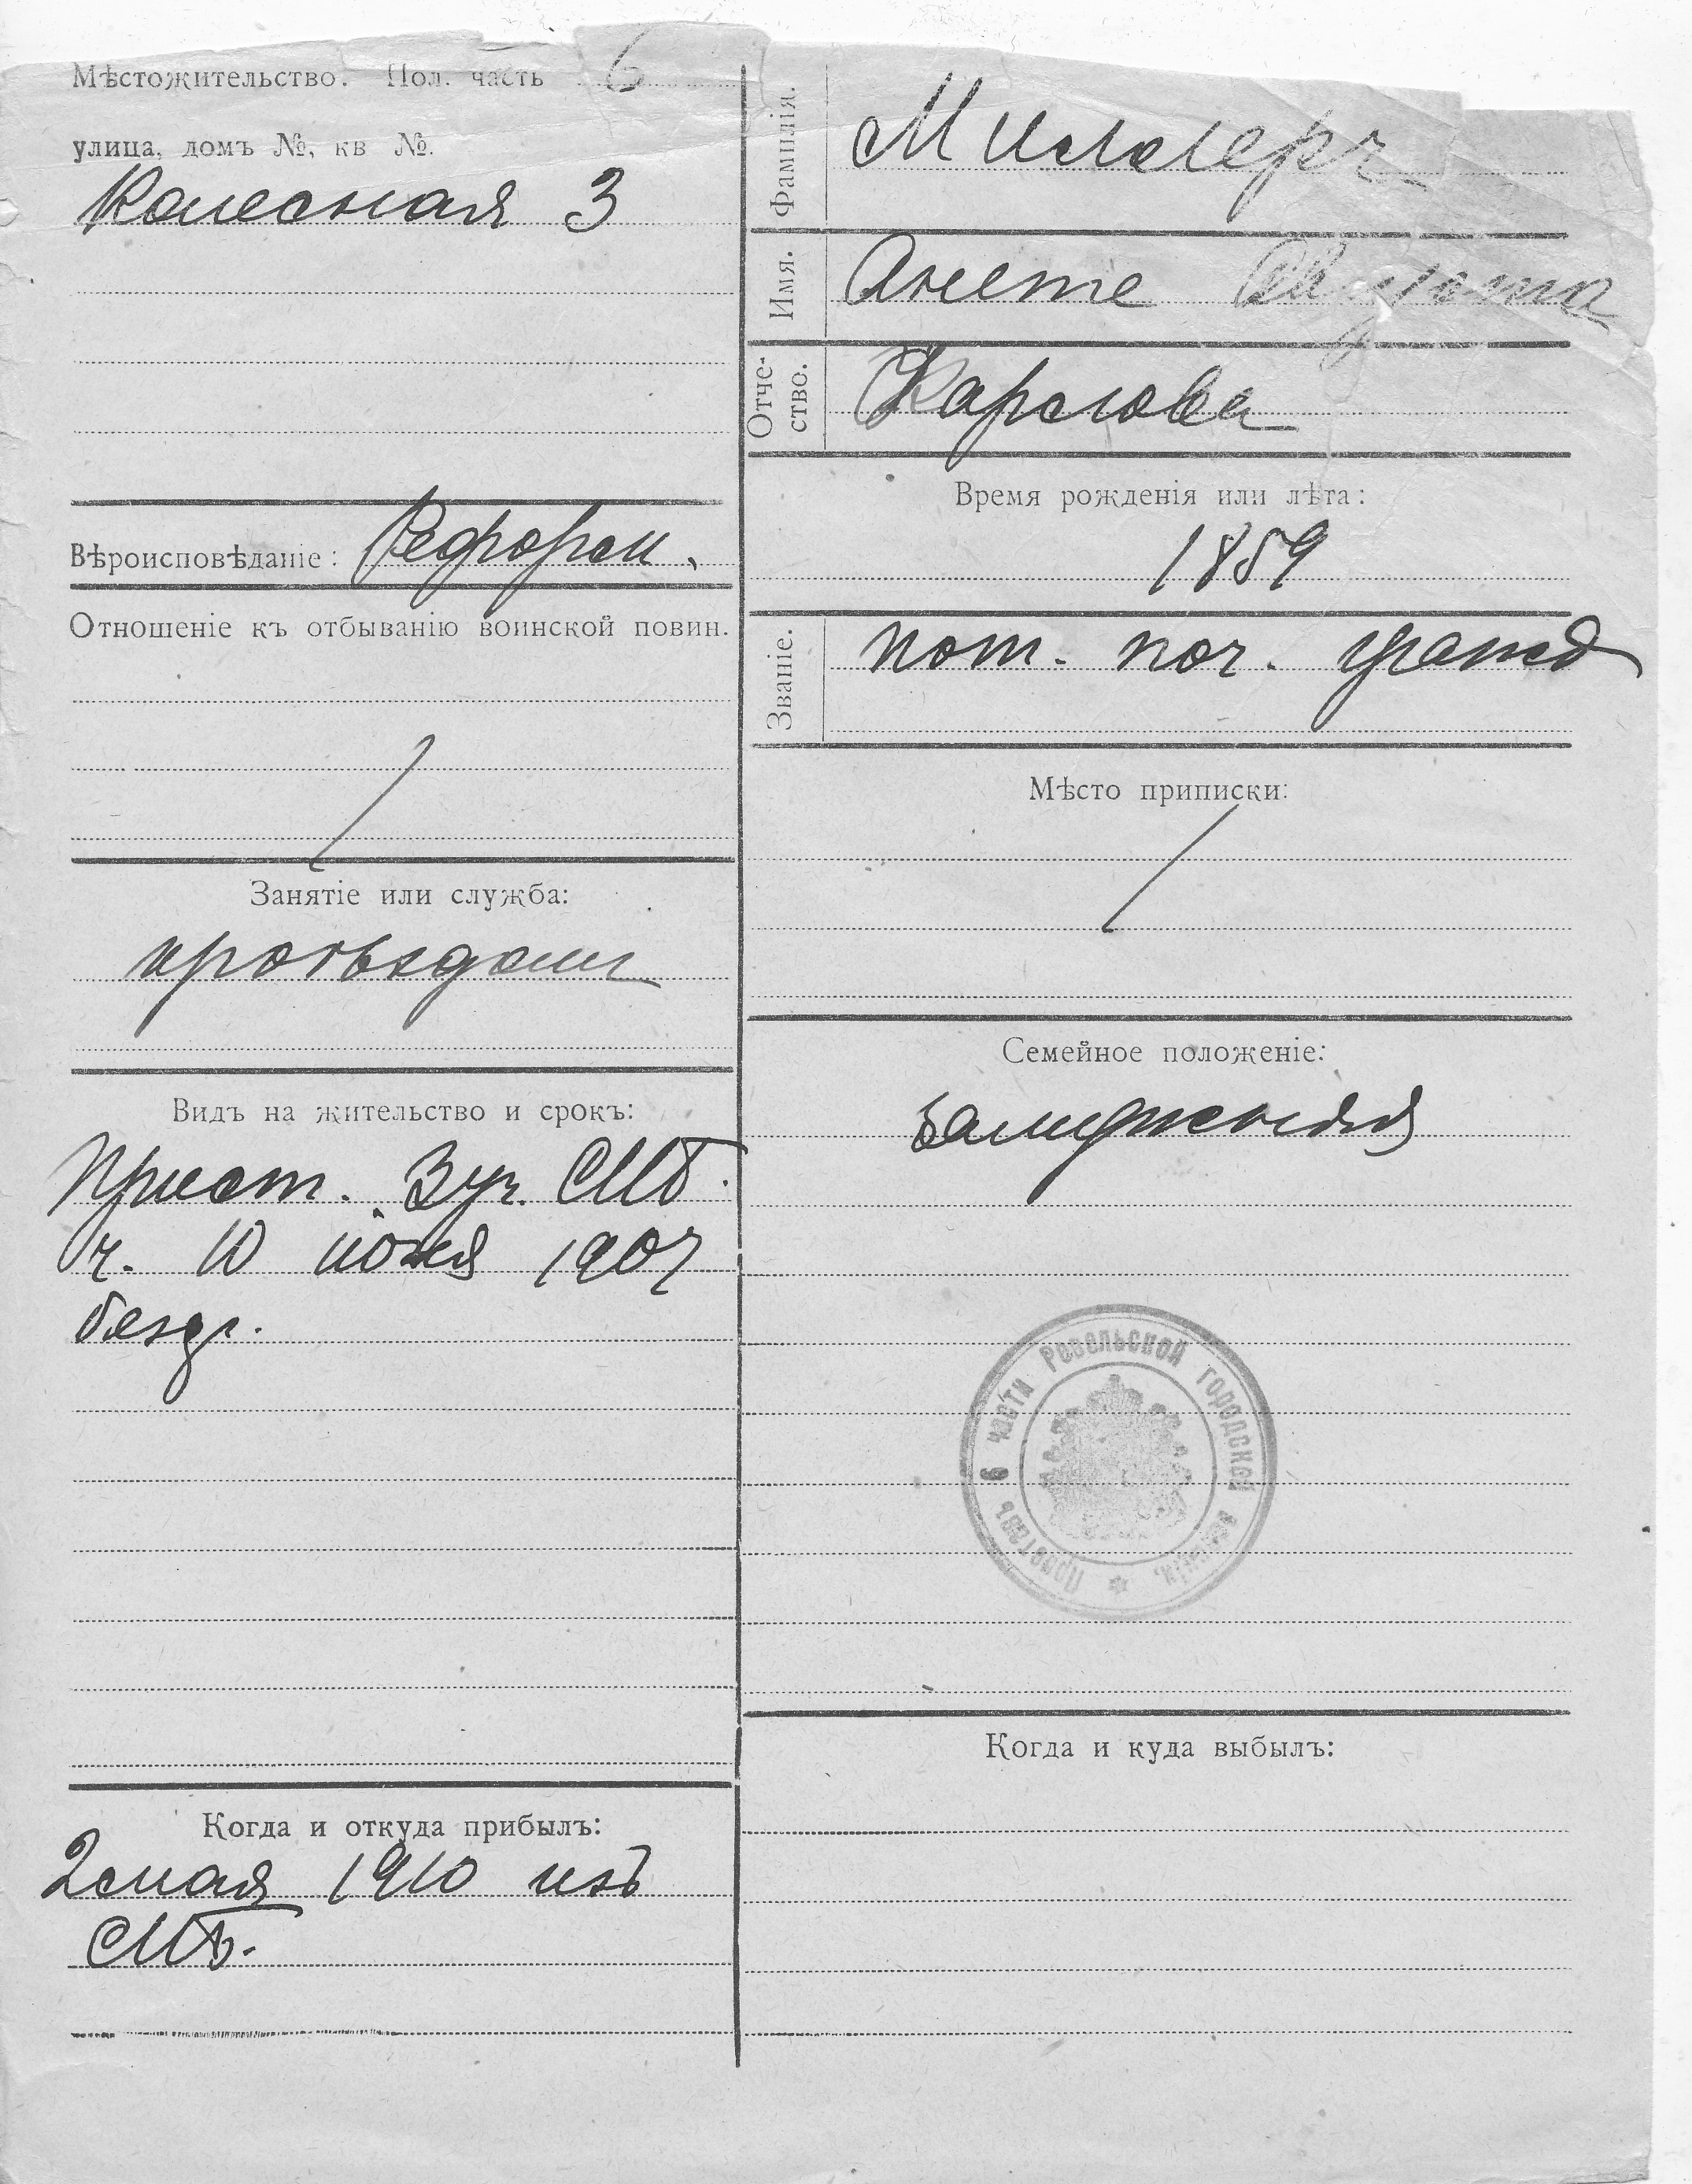 Мѣстожительство. Пол. часть 6
улица, домъ №, кв №.
Колесная 3
Вѣроисповѣданіе: Реформ.
Отношеніе къ отбыванію воинской повин.
Занятіе или служба:
Видъ на жительство и срокъ:
Прист. 3 уч. СПБ.
ч. 10 іюня 1907
безср.
Когда и откуда прибылъ:
2 мая 1910 изъ
СПБ.
Фамилія. Миллеръ
Имя. Анете Августа
Отче-
ство. Карлова
Время рожденія или лѣта:
1859
Званіе. пот. поч. гражд
Мѣсто приписки:
Семейное положеніе:
замужняя
Приставъ 6 части Ревельской городской полиціи.
Когда и куда выбылъ: